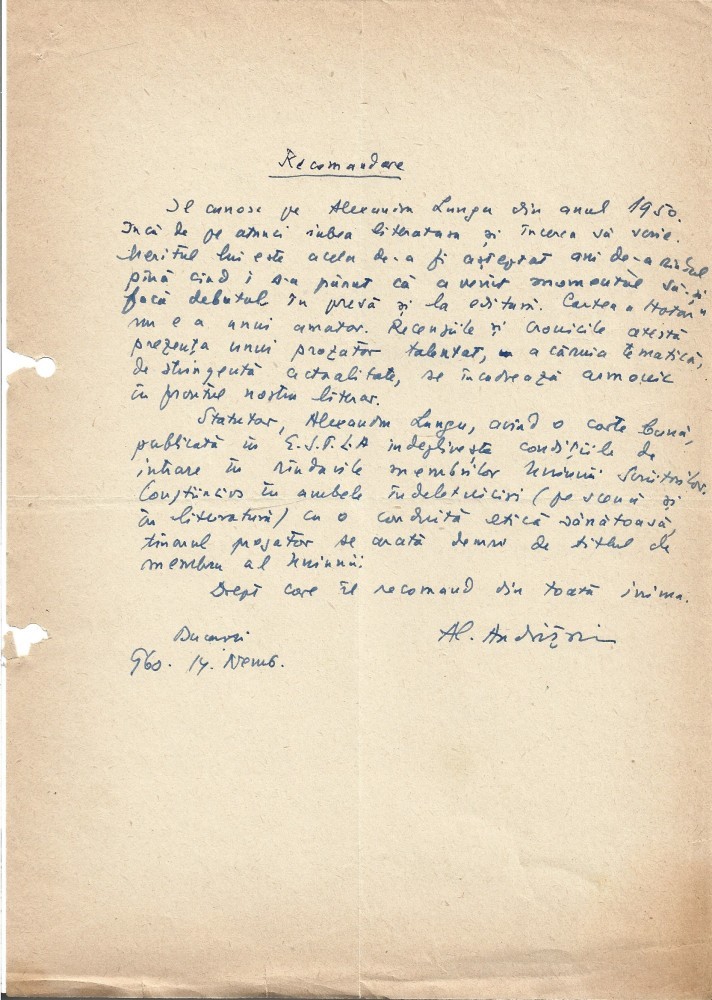 Recomandare
Îl cunosc pe Alexandru Lungu din anul 1950.
Încă de pe atunci iubea literatura și încerca să scrie.
Meritul lui este acela de-a fi așteptat ani de-a rîndul
pînă cînd i s-a părut că a venit momentul să-și
facă debutul în presă și la editură. Cartea „Hotar"
nu e a unui amator. Recenziile și cronicile atestă
prezența unui prozator talentat, a căruia tematică,
de stringentă actualitate, se încadrează armonic
în frontul nostru literar.
Statutar, Alexandru Lungu, avînd o carte bună,
publicată în E.S.P.L.A îndeplinește condițiile de
intrare în rîndurile membrilor Uniunii Scriitorilor.
Conștiincios în ambele îndeletniciri (pe scenă și
în literatură) cu o conduită etică sănătoasă,
tînărul prozator se arată demn de titlul de
membru al Uniunii.
Drept care îl recomand din toată inima.
București
960. 14. Nemb.
Al. Andrițoiu